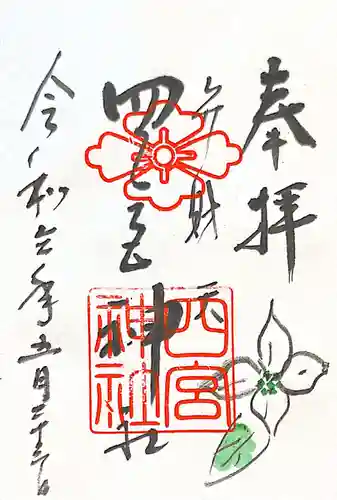 奉拝
弁財天
四宮神社
四宮神社
令和六年五月二十六日